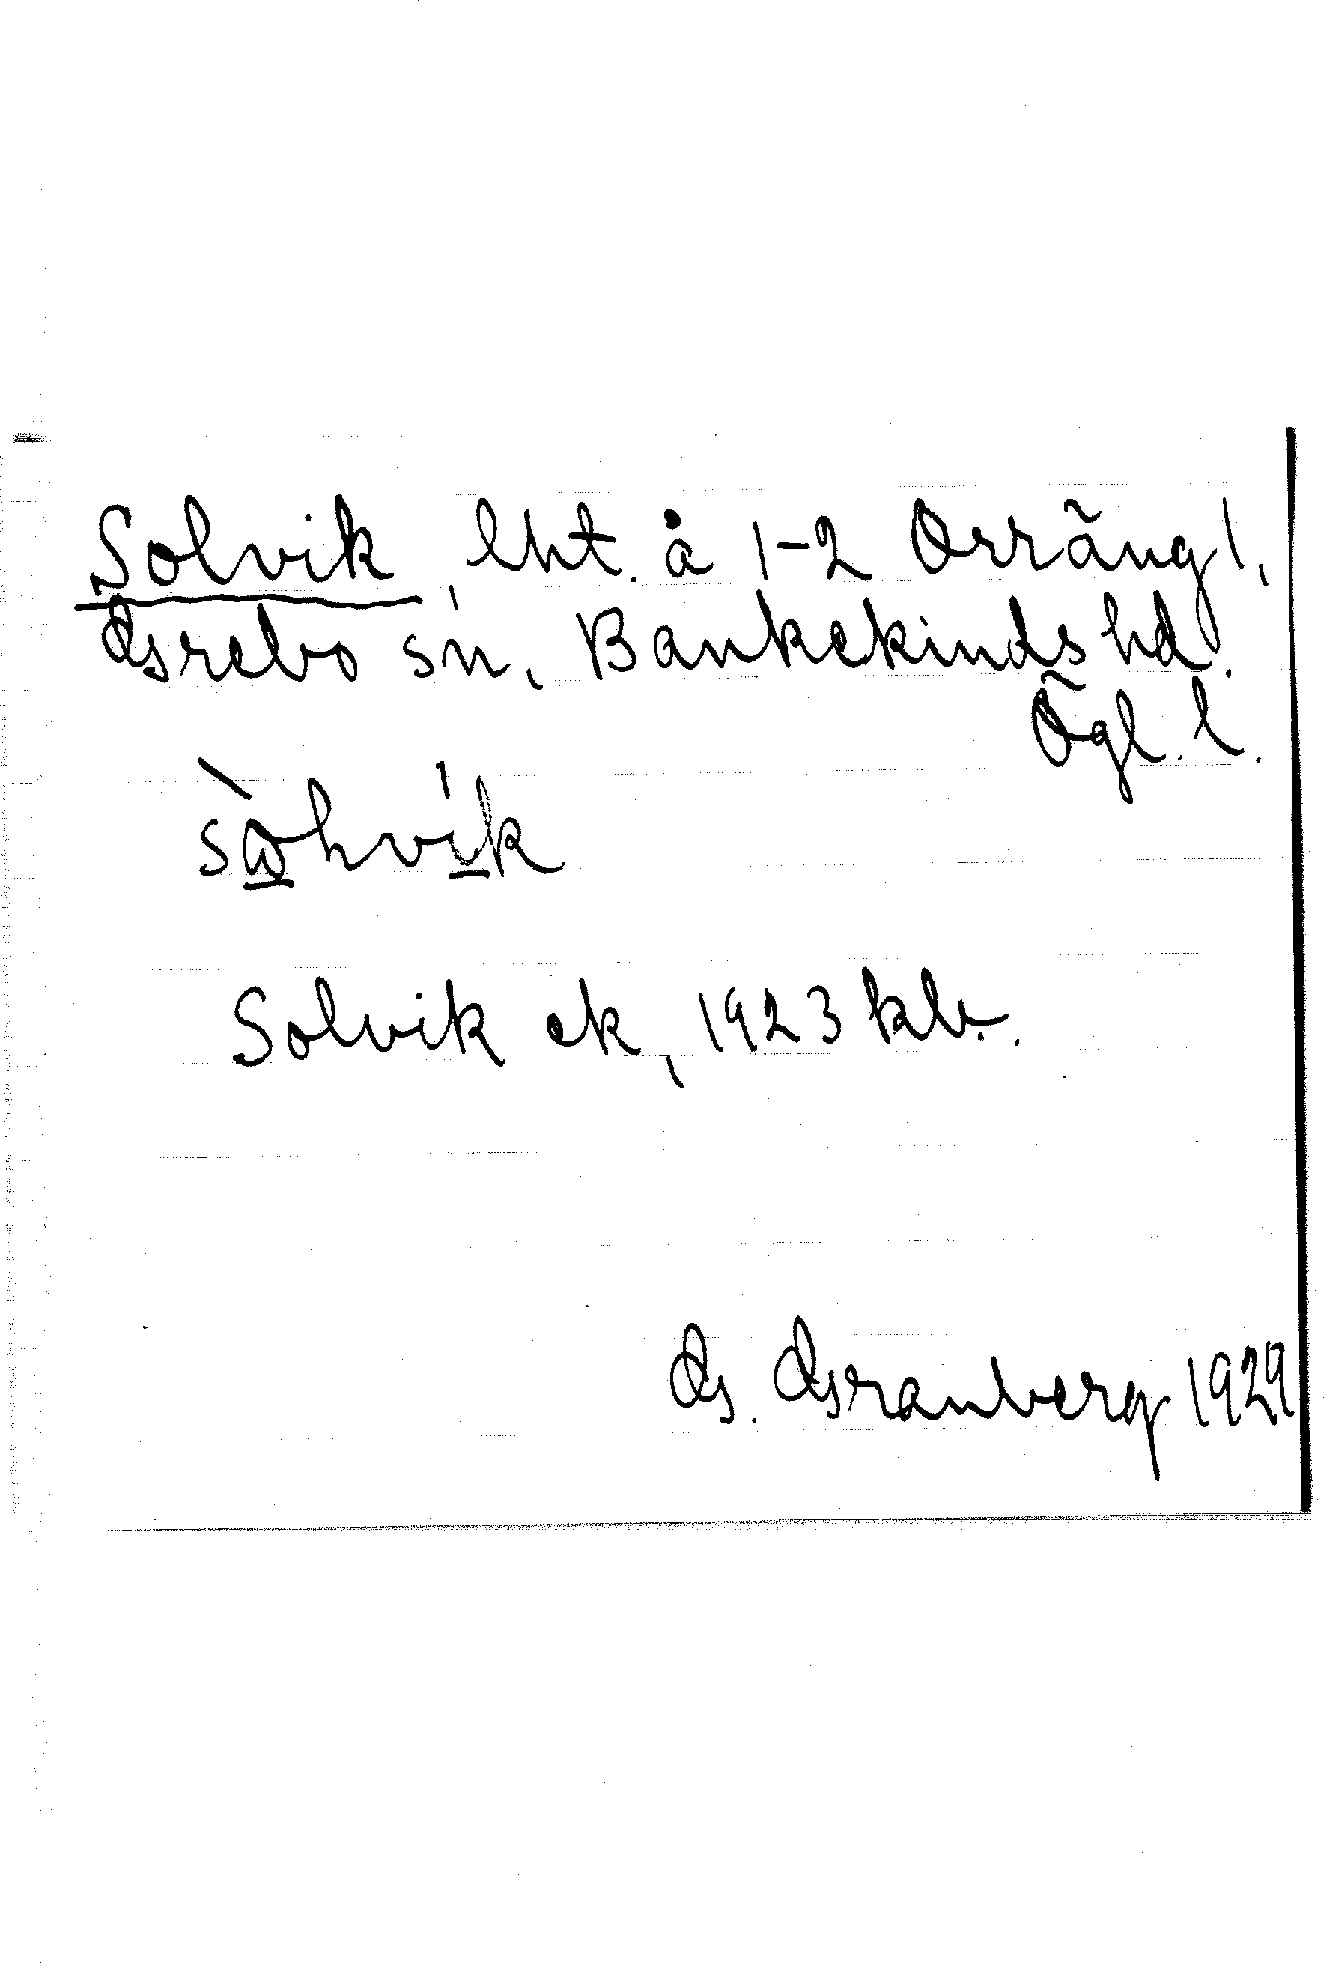 Solvik, lht. å 1-2 Orräng l,
Grebo sn, Bankekinds hd.
Ögl. l.
Solvik ek, 1923 klb.
G. Granberg 1929